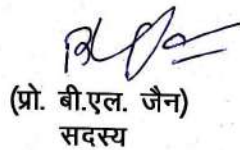 (प्रो. बी.एल. जैन)
सदस्य